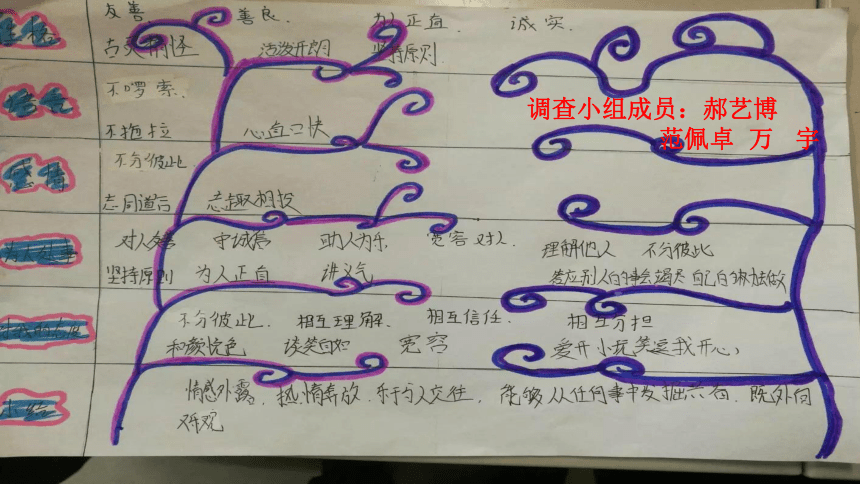 性格
友善、 善良、 为人正直、 诚实、
古灵精怪 活泼开朗 坚持原则
不啰索、
调查小组成员：郝艺博
范佩卓 万 宇
不拖拉 心直口快
感情
不分彼此
志同道合 志趣相投
对人友善 守诚信 助人为乐 宽容对人、 理解他人 不分彼此
坚持原则 为人正直 讲义气 答应别人的事会竭尽自己的办法做
不分彼此、 相互理解、 相互信任、 相互分担
和颜悦色 谈笑自如 宽容 爱开小玩笑逗我开心，
小结
情感外露、热情奔放、乐于与人交往，能够从任何事中发掘 既外向
乐观